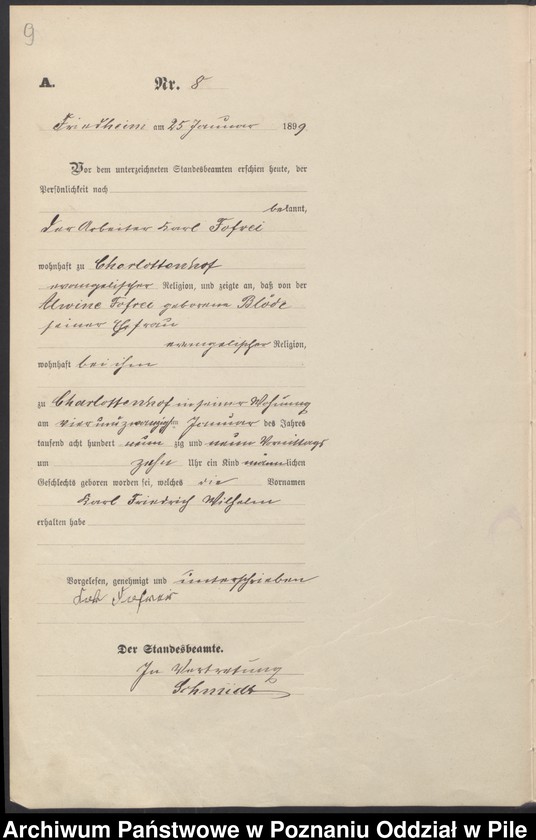 9
A. Nr. 8
Friedheim am 25 Januar 1899
Vor dem unterzeichneten Standesbeamten erschien heute, der
Persönlichkeit nach
bekannt,
der Arbeiter Karl Tofrei
wohnhaft zu Charlottenhof
evangelischer Religion, und zeigte an, daß von der
Alwine Tofrei geborene Blöde
seiner Ehefrau
evangelischer Religion,
wohnhaft bei ihm
zu Charlottenhof in seiner Wohnung
am vierundzwanzigsten Januar des Jahres
tausend acht hundert neun zig und neun Vormittags
um zehn Uhr ein Kind männlichen
Geschlechts geboren worden sei, welches die Vornamen
Karl Friedrich Wilhelm
erhalten habe
Vorgelesen, genehmigt und unterschrieben
Der Standesbeamte.
In Vertretung
Schmidt
Archiwum Państwowe w Poznaniu Oddział w Pile